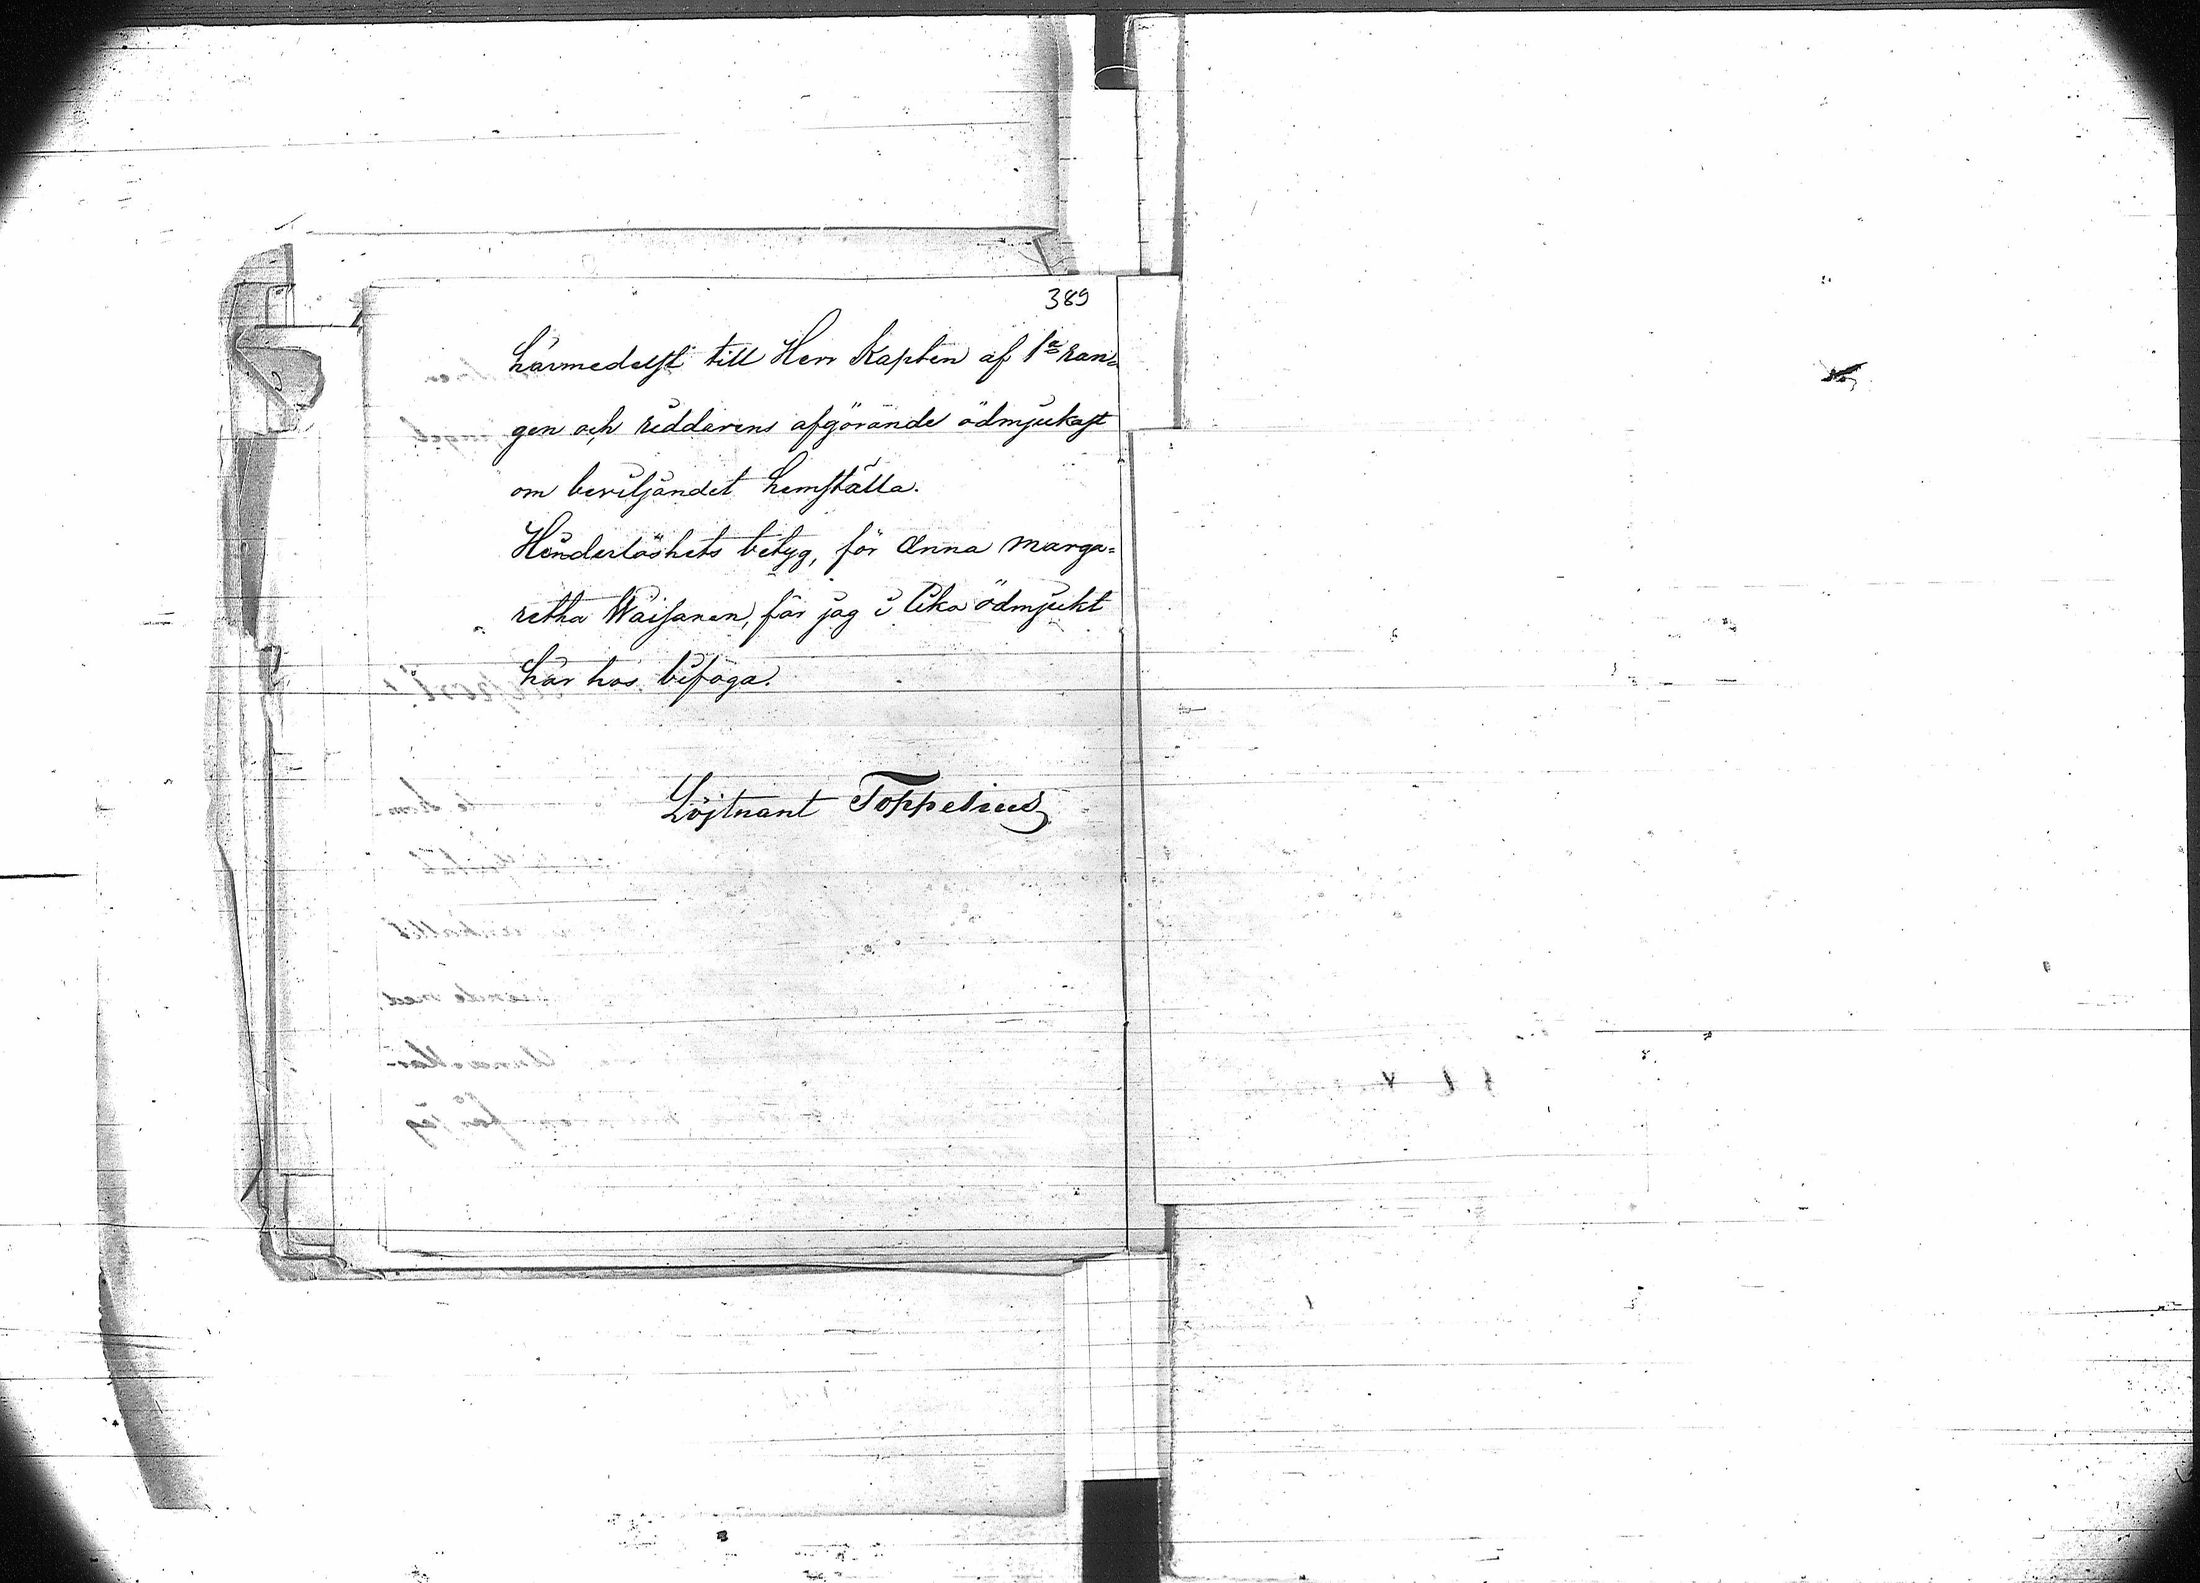 389
härmedelst till Herr Kapten af 1a ran=
gen och riddarens afgörande ödmjukast
om beviljandet hemställa.
Hinderlöshets betyg, för Anna Marga=
retha Wäisänen, får jag i lika ödmjukt
här hos bifoga.
Löjtnant Toppelius